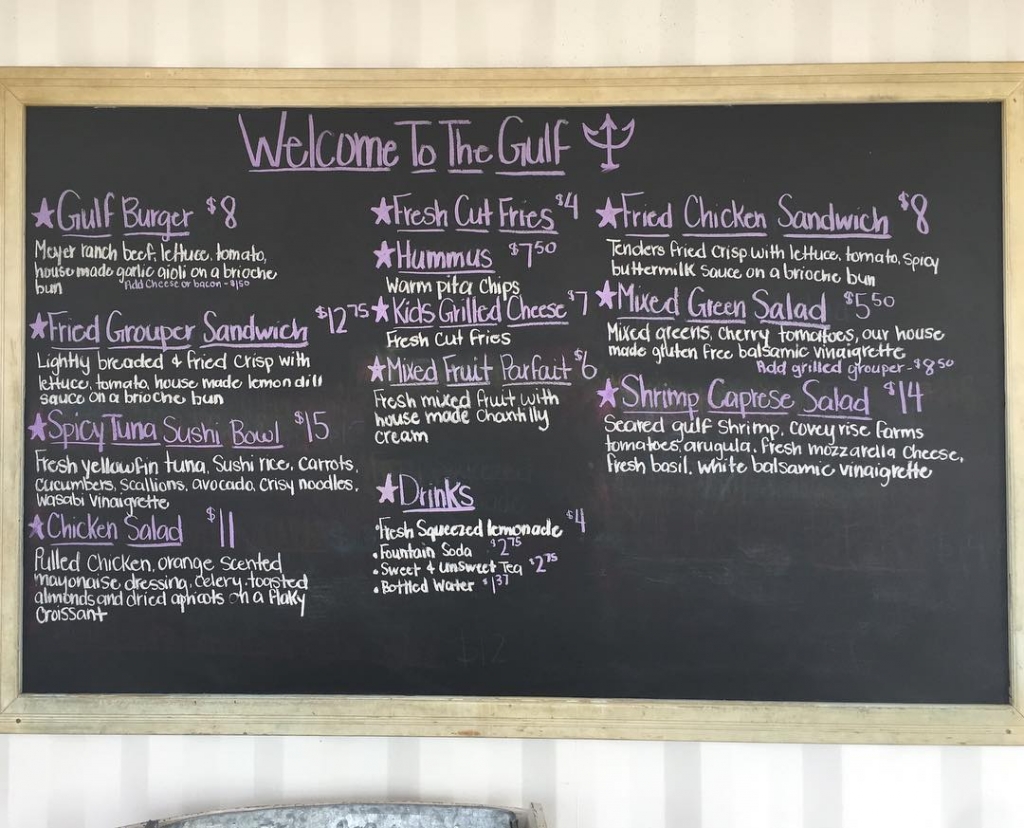 Welcome To The Gulf
★Gulf Burger $8
Meyer ranch beef, lettuce, tomato,
house made garlic aioli on a brioche
bun
Add Cheese or bacon - $1.50
★Fried Grouper Sandwich $12.75
Lightly breaded & fried crisp with
lettuce, tomato, house made lemon dill
sauce on a brioche bun
★Spicy Tuna Sushi Bowl $15
Fresh yellowfin tuna, Sushi rice, carrots,
cucumbers, scallions, avocado, crisy noodles,
wasabi vinaigrette
★Chicken Salad $11
Pulled Chicken, orange scented
mayonaise dressing, celery, toasted
almonds and dried apricots on a flaky
Croissant
★Fresh Cut Fries $4
★Hummus $7.50
Warm pita chips
★Kids Grilled Cheese $7
Fresh Cut Fries
★Mixed Fruit Parfait $6
Fresh mixed fruit with
house made Chantilly
cream
★Drinks
•Fresh Squeezed lemonade $4
•Fountain Soda $2.75
•Sweet & unsweet Tea $2.75
•Bottled Water $1.37
$12
★Fried Chicken Sandwich $8
Tenders fried crisp with lettuce, tomato, spicy
buttermilk sauce on a brioche bun
★Mixed Green Salad $5.50
Mixed greens, cherry tomatoes, our house
made gluten free balsamic vinaigrette
Add grilled grouper - $8.50
★Shrimp Caprese Salad $14
Seared gulf shrimp, covey rise farms
tomatoes, arugula, fresh mozzarella cheese,
fresh basil, white balsamic vinaigrette